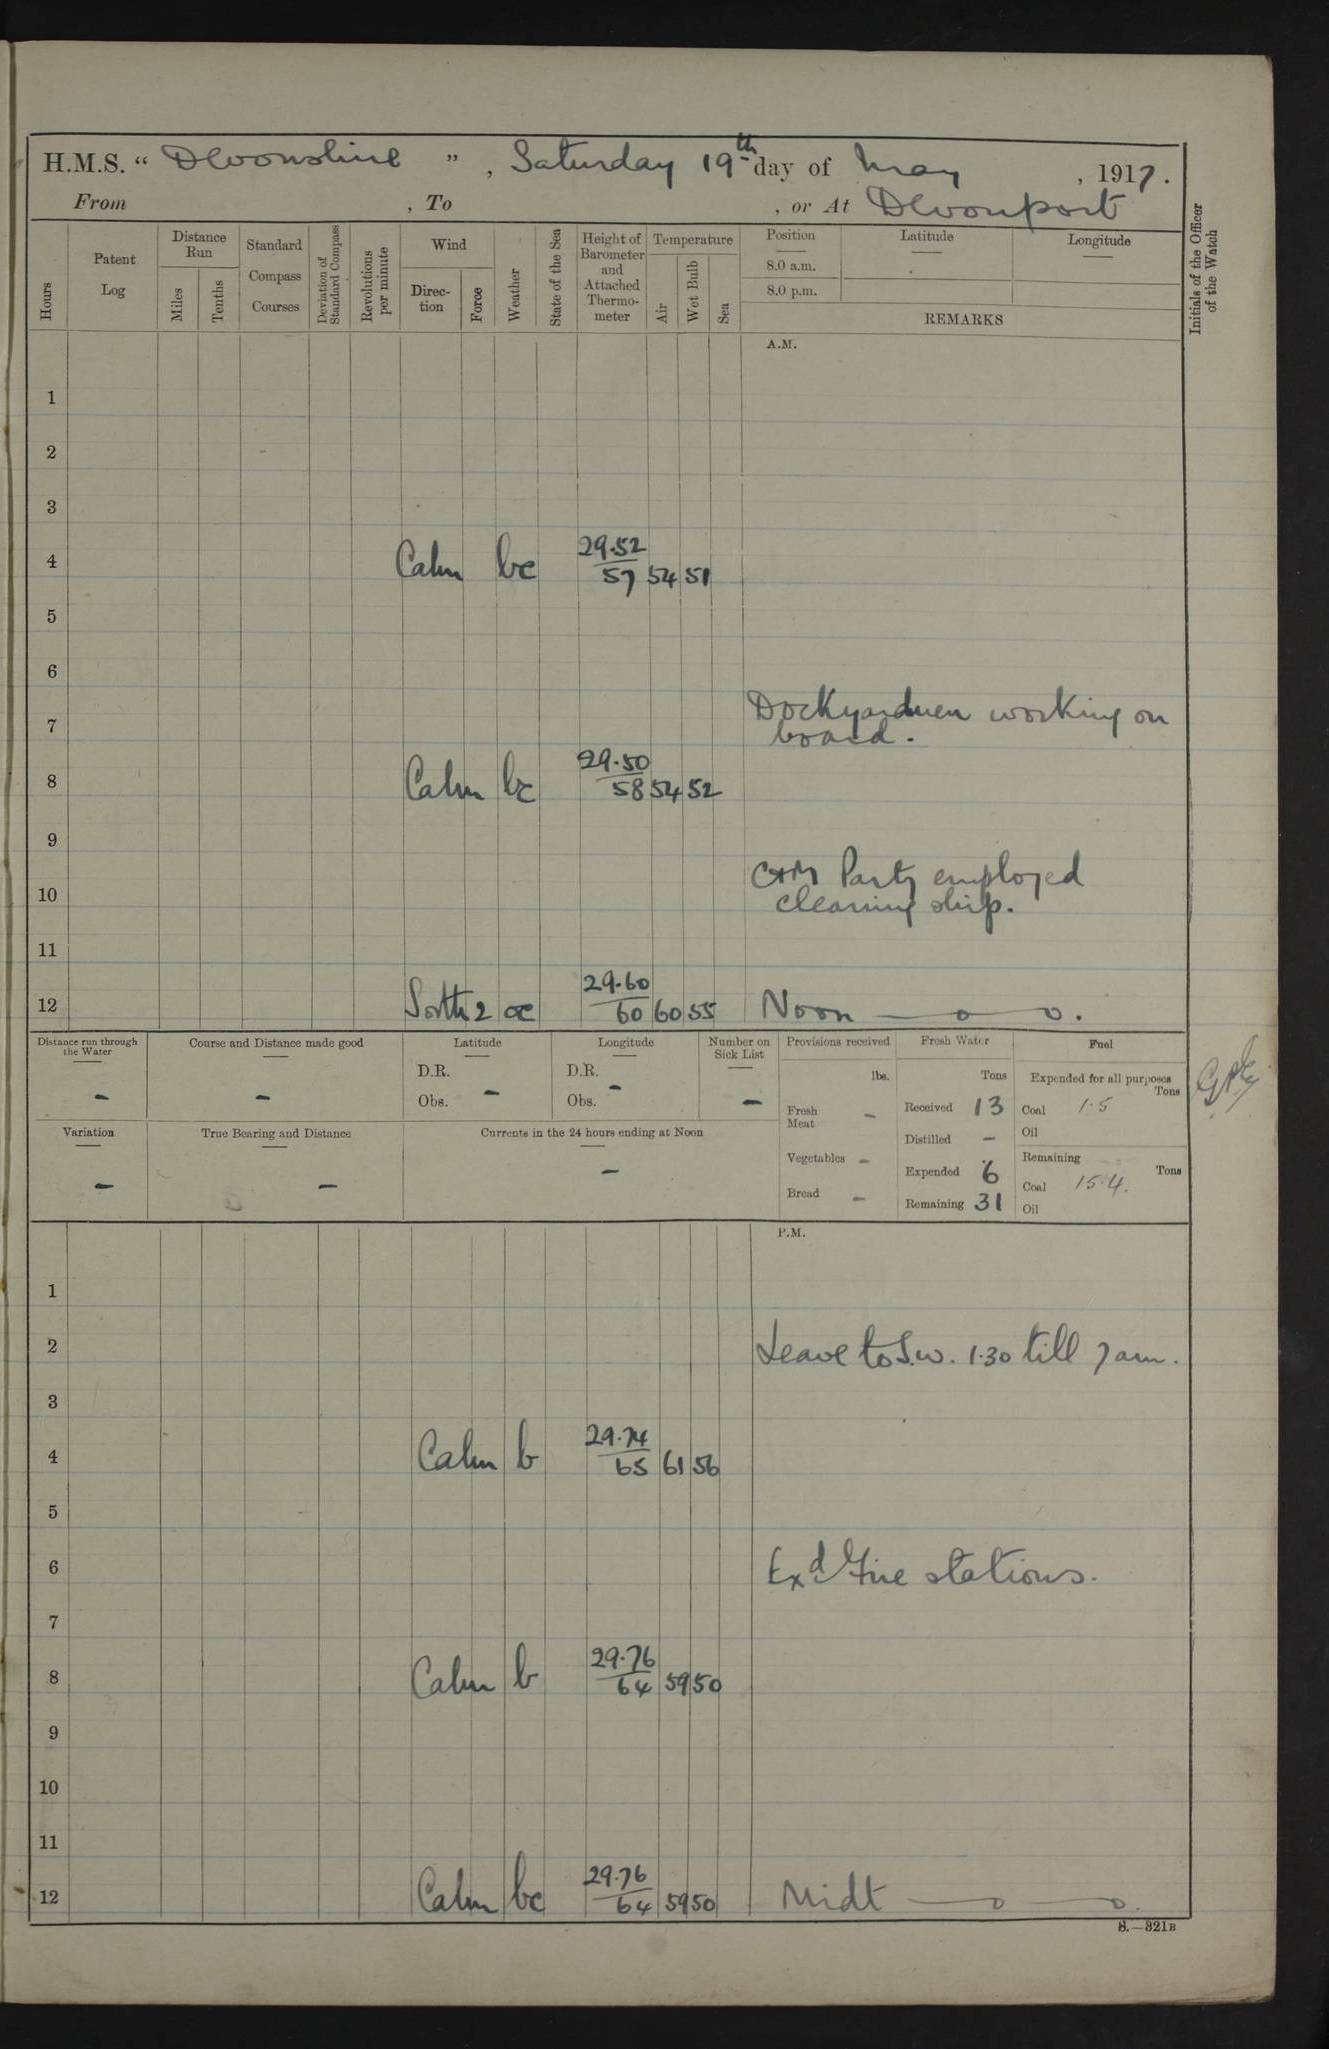 H.M.S. “ Devonshire ” , Saturday 19th day of May , 1917.
From , To , or At Devonport
Hours
Patent Log
Distance Run
Miles
Tenths
Standard Compass Courses
Deviation of Standard Compass
Revolutions per minute
Wind
Direc-tion
Force
Weather
State of the Sea
Height of Barometer and Attached Thermo-meter
Temperature
Air
Wet Bulb
Sea
Position
8.0 a.m.
8.0 p.m.
Latitude
Longitude
REMARKS
Initials of the Officer of the Watch
A.M.
1
2
3
4 Calm bc 29.52 57 54 51
5
6
7 Dockyardmen working on
board.
8 Calm bc 29.50 58 54 52
9
10 Party employed
cleaning ship.
11
12 South 2 oc 29.60 60 60 55 Noon — o — o.
Distance run through the Water
-
Course and Distance made good
-
Latitude
D.R.
Obs. -
Longitude
D.R. -
Obs.
Number on Sick List
-
Variation
-
True Bearing and Distance
-
Currents in the 24 hours ending at Noon
-
Provisions received
lbs.
Fresh Meat -
Vegetables -
Bread -
Fresh Water
Tons
Received 13
Distilled -
Expended 6
Remaining 31
Fuel
Expended for all purposes
Tons
Coal 1.5
Oil
Remaining
Tons
Coal 154.
Oil
P.M.
1
2 Leave to S.W. 1.30 till 7 am.
3
4 Calm b 29.74 65 61 56
5
6 Exd Fire stations.
7
8 Calm b 29.76 64 59 50
9
10
11
12 Calm bc 29.76 64 59 50 Midt — o — o.
S.—321B